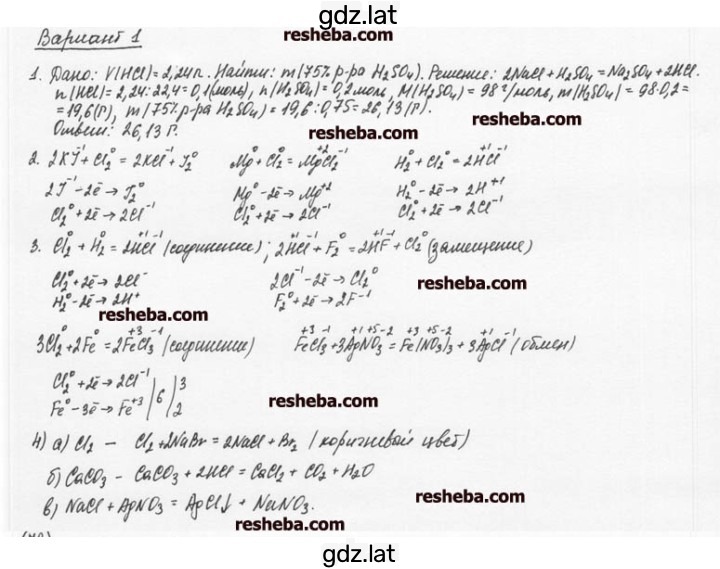 gdz.lat
Вариант 1
resheba.com
1. Дано: V(HCl)=2,24л. Найти: m(75% р-ра H₂SO₄). Решение: 2NaCl+H₂SO₄=Na₂SO₄+2HCl.
n(HCl)=2,24:22,4=0,1(моль), n(H₂SO₄)=0,2моль, M(H₂SO₄)=98 г/моль, m(H₂SO₄)=98·0,2=
=19,6(г), m(75% р-ра H₂SO₄)=19,6:0,75=26,13(г).
Ответ: 26,13 г.
resheba.com
2. 2KI⁻¹+Cl₂⁰=2KCl⁻¹+I₂⁰ Mg⁰+Cl₂⁰=Mg⁺²Cl₂⁻¹ H₂⁰+Cl₂⁰=2H⁺¹Cl⁻¹
2I⁻¹-2ē→I₂⁰ Mg⁰-2ē→Mg⁺² H₂⁰-2ē→2H⁺¹
Cl₂⁰+2ē→2Cl⁻¹ Cl₂⁰+2ē→2Cl⁻¹ Cl₂⁰+2ē→2Cl⁻¹
3. Cl₂⁰+H₂⁰=2H⁺¹Cl⁻¹ (соединение); 2H⁺¹Cl⁻¹+F₂⁰=2H⁺¹F⁻¹+Cl₂⁰ (замещение)
Cl₂⁰+2ē→2Cl⁻ 2Cl⁻¹-2ē→Cl₂⁰ resheba.com
H₂⁰-2ē→2H⁺ F₂⁰+2ē→2F⁻¹
resheba.com
3Cl₂⁰+2Fe⁰=2Fe⁺³Cl₃⁻¹ (соединение) Fe⁺³Cl₃⁻¹+3Ag⁺¹N⁺⁵O₃⁻²=Fe⁺³(N⁺⁵O₃⁻²)₃+3Ag⁺¹Cl⁻¹ (обмен)
Cl₂⁰+2ē→2Cl⁻¹ | 6 | 3
Fe⁰-3ē→Fe⁺³ | 2
resheba.com
4) а) Cl₂ – Cl₂+2NaBr=2NaCl+Br₂ (коричневой цвет)
б) CaCO₃ – CaCO₃+2HCl=CaCl₂+CO₂+H₂O
resheba.com
в) NaCl+AgNO₃=AgCl↓+NaNO₃.
resheba.com
gdz.lat